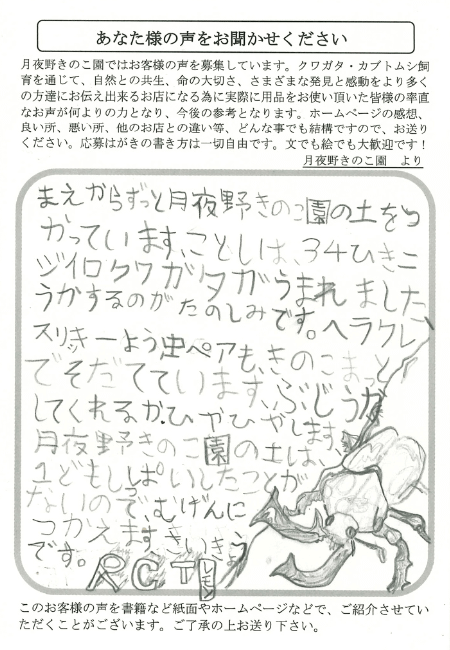 あなた様の声をお聞かせください
月夜野きのこ園ではお客様の声を募集しています。クワガタ・カブトムシ飼
育を通じて、自然との共生、命の大切さ、さまざまな発見と感動をより多く
の方達にお伝え出来るお店になる為に実際に用品をお使い頂いた皆様の率直
なお声が何よりの力となり、今後の参考となります。ホームページの感想、
良い所、悪い所、他のお店との違い等、どんな事でも結構ですので、お送り
ください。応募はがきの書き方は一切自由です。文でも絵でも大歓迎です！
月夜野きのこ園　より
まえからずっと月夜野きのこ園の土をつ
かっています、ことしは、34ひきニ
ジイロクワガタがうまれました、
うかするのがたのしみです。ヘラクレ
スリッキーよう虫ペアも、きのこまっと
でそだてています、ぶじうか
してくれるか、ひやひやします、
月夜野きのこ園の土は、
1どもしっぱいしたことが
ないので、むげんに
つかえます
です。
このお客様の声を書籍など紙面やホームページなどで、ご紹介させてい
ただくことがございます。ご了承の上お送り下さい。